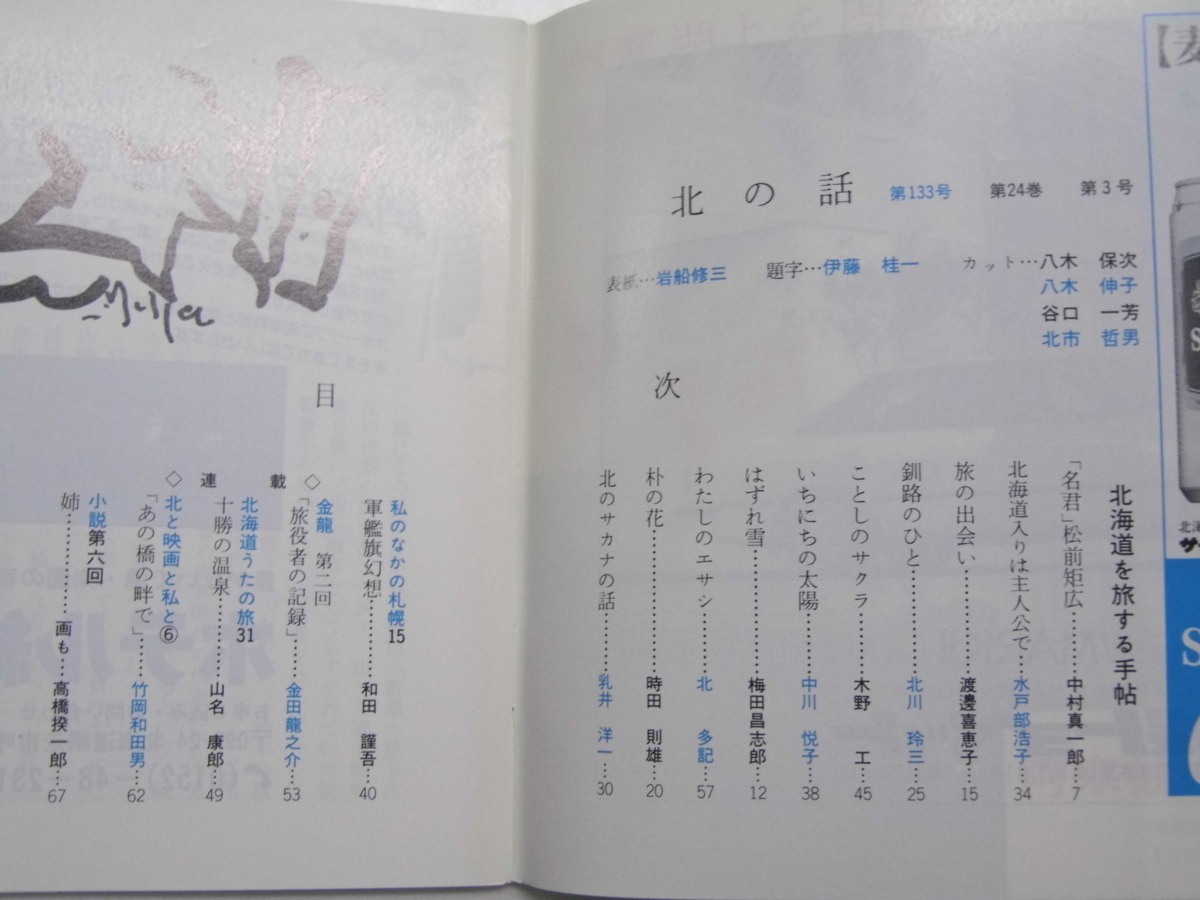 北の話 第133号 第24巻 第3号
表紙…岩船修三 題字…伊藤 桂一 カット…八木 保次
八木 伸子
谷口 一芳
北市 哲男
目 次
北海道を旅する手帖
「名君」松前矩広………中村真一郎…7
北海道入りは主人公で…水戸部浩子…34
旅の出会い…………渡邊喜恵子…15
釧路のひと…………北川 玲三…25
ことしのサクラ………木野 工…45
いちにちの太陽………中川 悦子…38
はずれ雪……………梅田昌志郎…12
わたしのエサシ………北 多記…57
朴の花………………時田 則雄…20
北のサカナの話………乳井 洋一…30
私のなかの札幌15
軍艦旗幻想…………和田 謹吾…40
◇連載◇
金龍 第二回
「旅役者の記録」……金田龍之介…53
北海道うたの旅31
十勝の温泉…………山名 康郎…49
北と映画と私と⑥
「あの橋の畔で」……竹岡和田男…62
小説第六回
姉……………画も…高橋揆一郎…67